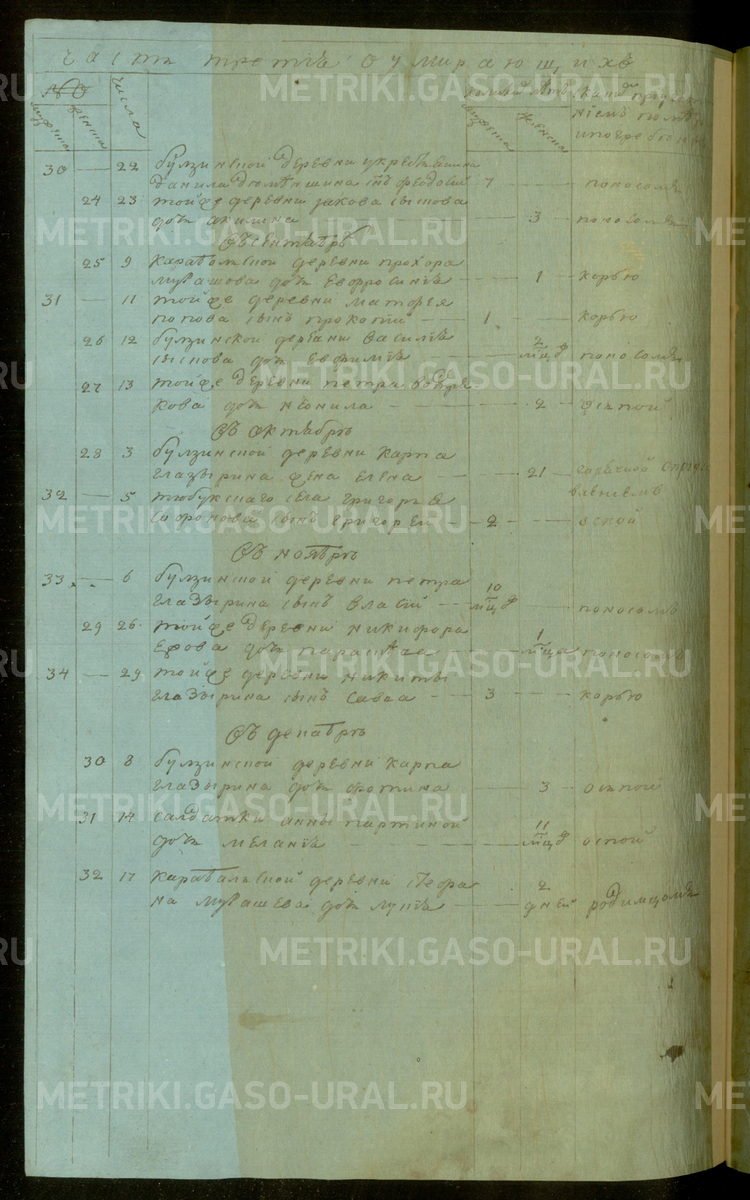 часть третіѧ о умирающихъ
№
мужеска женска числа
коликихъ лѣтъ
мужеска женска
30 — 22 булзинской деревни у крестьянина
данила сынъ феодосій — 7 — — поносомъ
24 23 тойже деревни іакова сынова
дочь акилина — — 3 — поносомъ
Въ сентябрѣ
25 9 карабольской деревни прохора
мурашова дочь Евфросинія — — 1 — корью
31 — 11 тойже деревни матфея
попова сынъ прокопій — 1 — — корью
26 12 булзинской деревни василія
сынова дочь Евфимія — — 2 мцъ — поносомъ
27 13 тойже деревни петра
кова дочь неонила — — 2 — оспой
Въ октябрѣ
28 3 булзинской деревни карпа
глазырина жена елена — — 21 — горячкой
32 — 5 тюбукскаго села григорья
сафронова сынъ григорей — 2 — — оспой
Въ ноябрѣ
33 — 6 булзинской деревни петра
глазырина сынъ власій — 10 мцъ — — поносомъ
29 26 тойже деревни никифора
Ежова дочь параскева — — 1 мца — поносомъ
34 — 29 тойже деревни никиты
глазырина сынъ савва — 3 — — корью
Въ декабрѣ
30 8 булзинской деревни карпа
глазырина дочь фотина — — 3 — оспой
31 14 салдатки анны
дочь меланія — — 11 мцъ — оспой
32 17 карабольской деревни стефа
на мурашева дочь — — 2 дней родимцомъ
METRIKI.GASO-URAL.RU